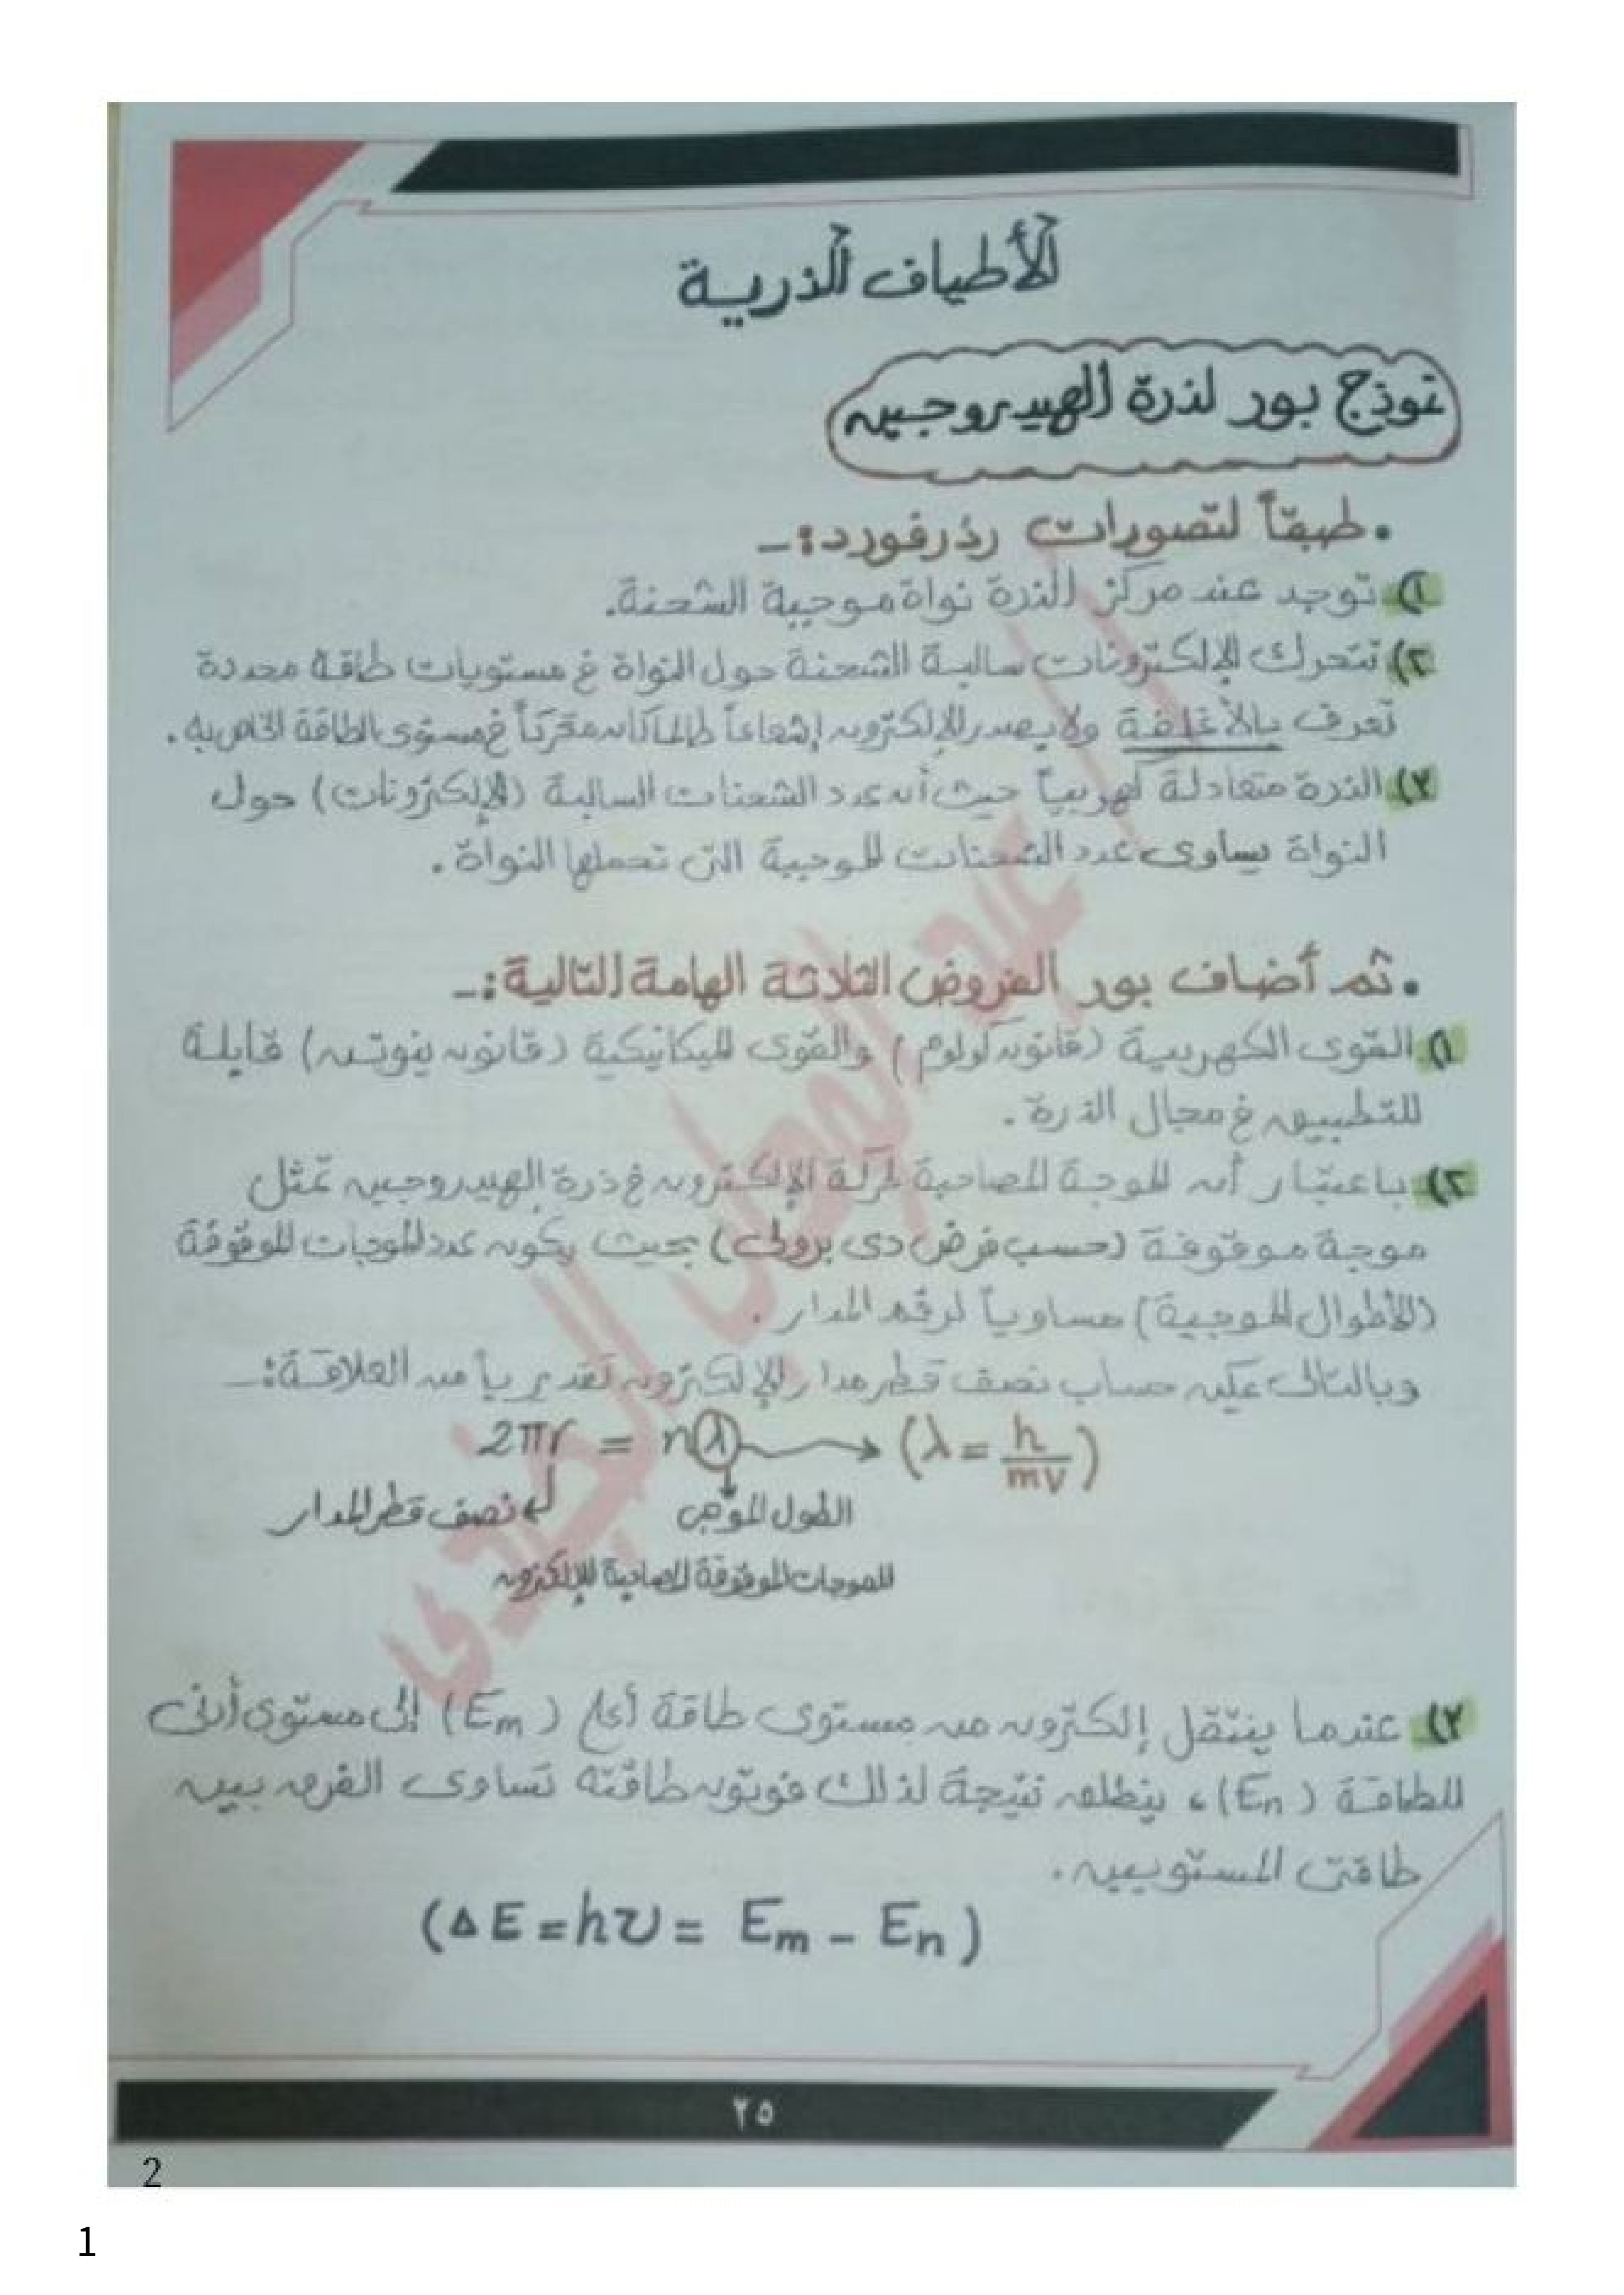 الأطياف الذرية
نموذج بور لذرة الهيدروجين
• طبقاً لتصورات رذرفورد :-
١) توجد عند مركز الذرة نواة موجبة الشحنة.
٢) تتحرك الإلكترونات سالبة الشحنة حول النواة في مستويات طاقة محددة
تعرف بالأغلفة ولا يصدر الإلكترون إشعاعاً طالما كان متحركاً في مستوى الطاقة الخاص به.
٣) الذرة متعادلة كهربياً حيث أن عدد الشحنات السالبة (الإلكترونات) حول
النواة يساوى عدد الشحنات الموجبة التى تحملها النواة.
• ثم أضاف بور الفروض الثلاثة الهامة التالية :-
١) القوى الكهربية (قانون كولوم) والقوى الميكانيكية (قانون نيوتن) قابلة
للتطبيق في مجال الذرة.
٢) باعتبار أن الموجة المصاحبة لحركة الإلكترون في ذرة الهيدروجين تمثل
موجة موقوفة (حسب فرض دى برولى) بحيث يكون عدد الموجات الموقوفة
(الأطوال الموجية) مساوياً لرقم المدار.
وبالتالى يمكن حساب نصف قطر مدار الإلكترون تقديرياً من العلاقة :-
2πr = nλ → (λ = h/mv)
نصف قطر المدار
الطول الموجى
للموجات الموقوفة المصاحبة للإلكترون
٣) عندما ينتقل إلكترون من مستوى طاقة أعلى (Em) إلى مستوى أدنى
للطاقة (En) ، ينطلق نتيجة لذلك فوتون طاقته تساوى الفرق بين
طاقتى المستويين.
(ΔE = hυ = Em - En)
٢٥
2
1